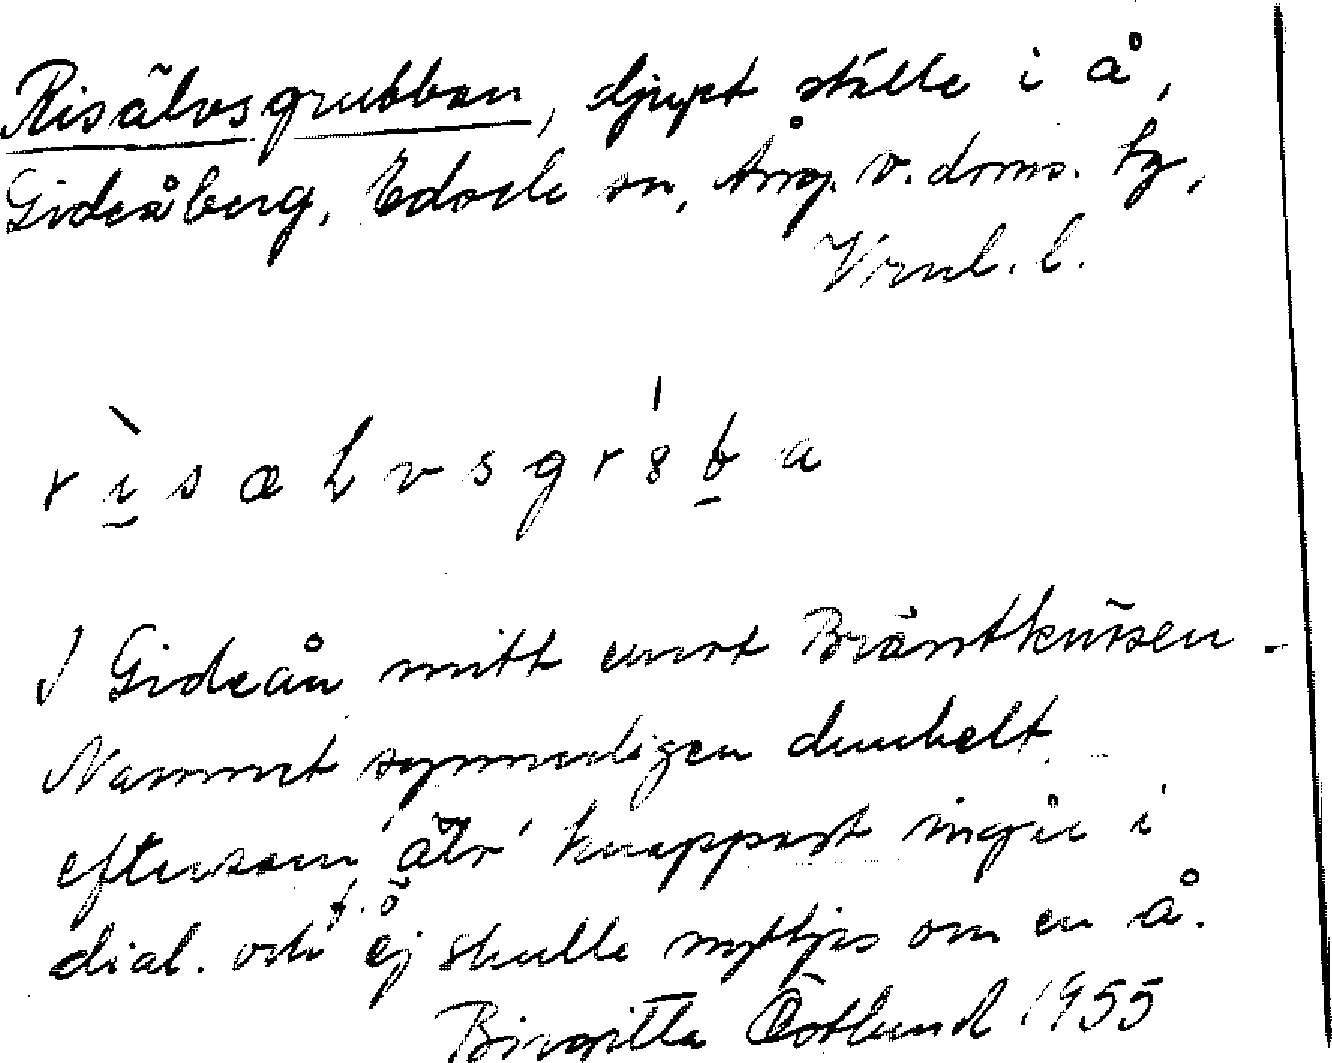 Risälvsgrubban, djupt ställe i å,
Gideåberg, Edsele sn, Ång. v. doms. hg,
Vrnl. l.
r i s æ L v s g r 8 b a
I Gideån mitt emot Bräntknösen.
Namnet synnerligen dunkelt
eftersom 'älv' knappast ingår i
dial. och f. ö. ej skulle nyttjas om en å.
Birgitta Östlund 1955